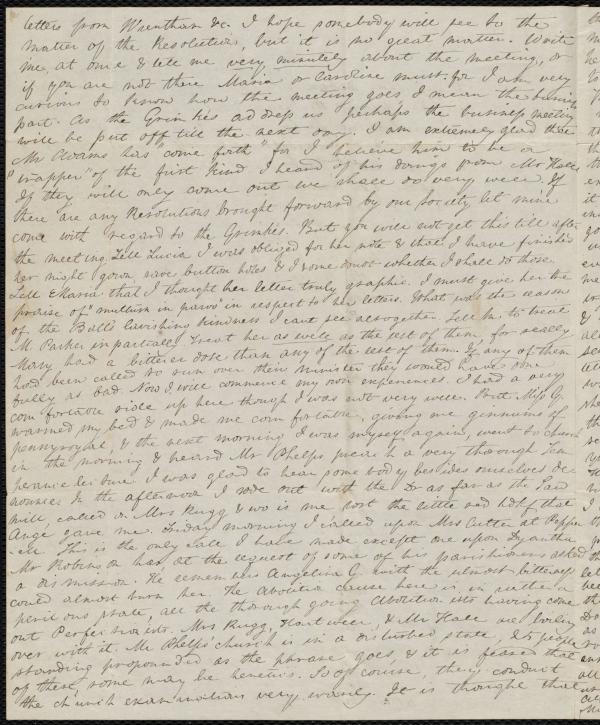 letters from Wrentham &c. I hope somebody will see to the
matter of the Resolution, but it is no great matter. Write
me at once & tell me very minutely about the meeting, or
if you are not there Maria or Caroline must. for I am very
curious to know how the meeting goes I mean the business
part. As the Grimkes address us perhaps the business meeting
will be put off till the next day. I am extremely glad that
Mr Adams has "come forth" for I believe him to be a
of the first kind I heard of his doings from Mr Hale
If they will only come out we shall do very well. If
there are any Resolutions brought forward by our society let mine
come with regard to the Grimkes. But you will not get this till after
the meeting. Tell Lucia I was obliged for her note & that I have finished
her night gown save button holes & I some doubt whether I shall do those
Tell Maria that I thought her letter truly graphic. I must give her the
praise of "multum in parvo" in respect to her letters. What was the reason
of the Balls lavishing kindness I cant see altogether. Tell to treat
M. Parker impartially. Treat her as well as the rest of them, for really
Mary had a bitterer dose than any of the rest of them. If any of them
had been called to run over their minister they would have done
fully as bad. Now I will commence my own experiences. I had a very
comfortable ride up here though I was not very well. But Miss G.
warmed my bed & made me comfortable, giving me
pennyroyal, & the next morning I was myself again, went to church
in the morning & heard Mr Phelps preach a very thorough Tem
perance lecture I was glad to hear somebody besides ourselves de
nounced In the afternoon I rode out with the Dr as far as the
mill, called on Mrs Rugg, & wo is me lost the little red hdkf that
Ange gave me. Friday morning I called upon Mrs Cutter at Pepper
ell. This is the only call I have made except one upon Dyantha
Mr Robinson has at the request of some of his parishioners asked
a dismission. He remembers Angelina G. with the utmost bitterness
could almost burn her. The abolition cause here is in rather a
perilous state, all the thorough going Abolitionists having come
out Perfectionists. Mrs Rugg, & Mr Hale are
over with it. Mr Phelps' church is in a disturbed state, & 5 people
standing propounded as the phrase goes, & it is feared that
of these some may be heretics. So of course, they conduct
the church examinations very warily. It is thought that